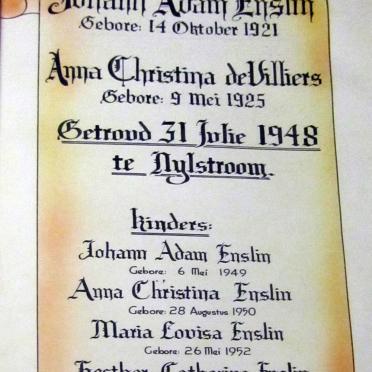 Johann Adam Enslin
Gebore: 14 Oktober 1921
Anna Christina deVilliers
Gebore: 9 Mei 1925
Getroud 31 Julie 1948
te Nylstroom.
Kinders:
Johann Adam Enslin
Gebore: 6 Mei 1949
Anna Christina Enslin
Gebore: 28 Augustus 1950
Maria Lovisa Enslin
Gebore: 26 Mei 1952
Catharina Enslin